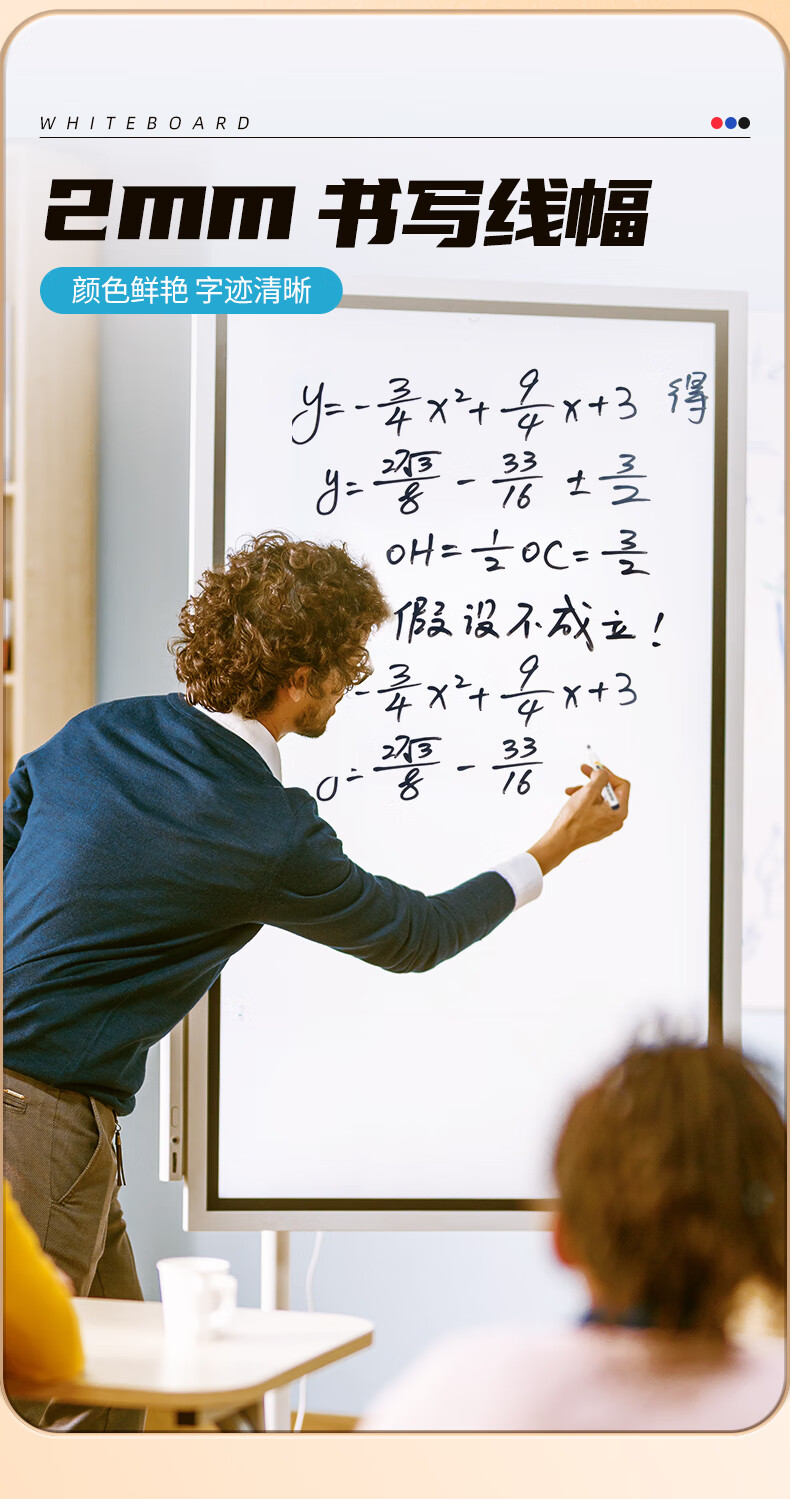 WHITEBOARD
2mm 书写线幅
颜色鲜艳 字迹清晰
y=-3/4x²+9/4x+3 得
y=27√3/8-33/16±3/2
OH=1/2OC=3/2
假设不成立!
-3/4x²+9/4x+3
=27√3/8-33/16